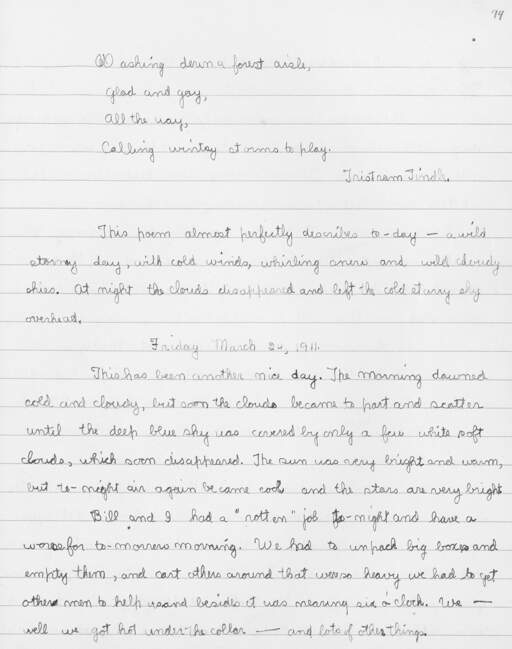 79
Dashing down a forest aisle,
Glad and gay,
All the way,
Calling wintry storms to play.
Tristram Tindle.
This poem almost perfectly describes to-day — a wild
stormy day, with cold winds, whirling snow and wild cloudy
skies. At night the clouds disappeared and left the cold starry sky
overhead.
Friday March 24, 1911.
This has been another nice day. The morning dawned
cold and cloudy, but soon the clouds became to part and scatter
until the deep blue sky was covered by only a few white soft
clouds, which soon disappeared. The sun was very bright and warm,
but to-night air again became cool and the stars are very bright
Bill and I had a "rotten" job to-night and have a
worse for to-morrow morning. We had to unpack big boxes and
empty them, and cart others around that were so heavy we had to get
other men to help us and besides it was nearing six o'clock. We —
well we got hot under the collar — and lots of other things.